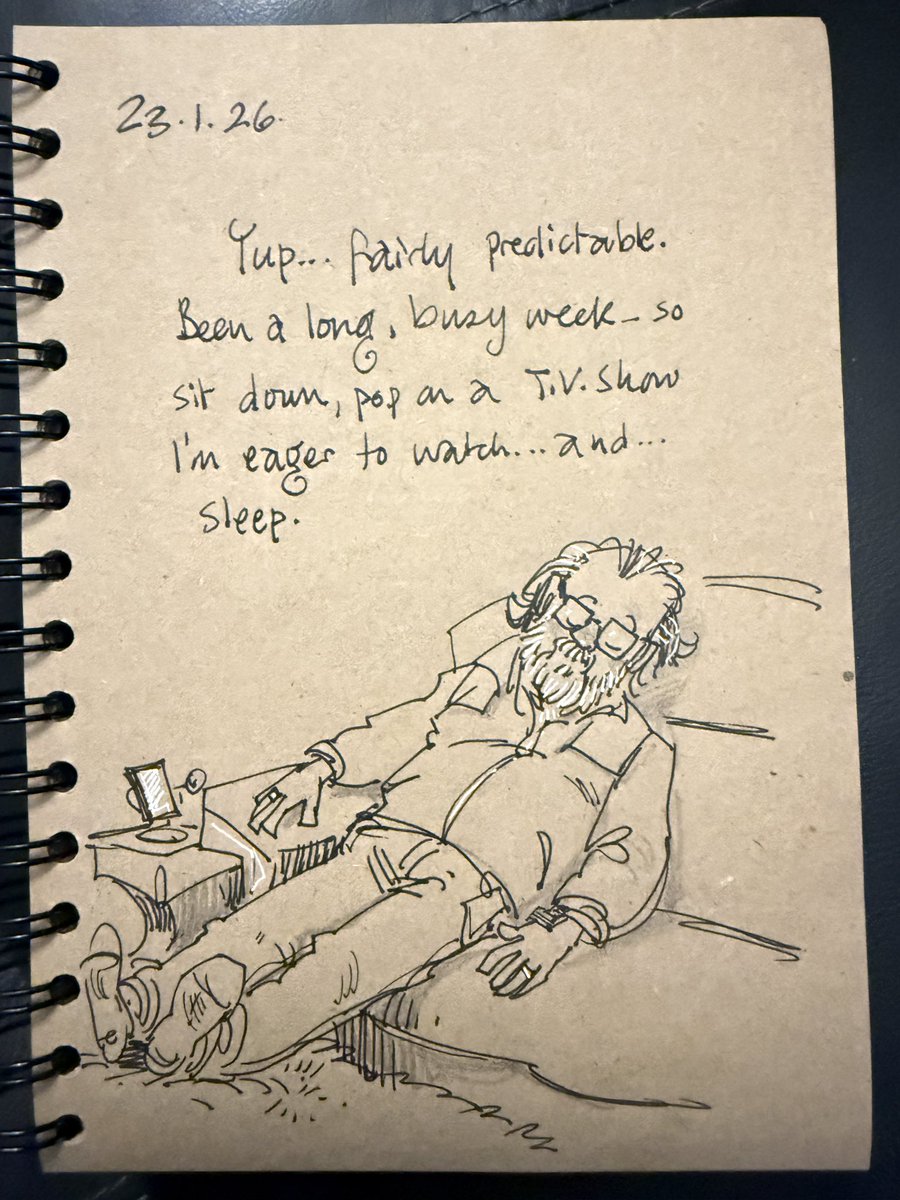 23.1.26.
Yup... fairly predictable.
Been a long, busy week - so
sit down, pop on a T.V. show
I'm eager to watch... and...
sleep.